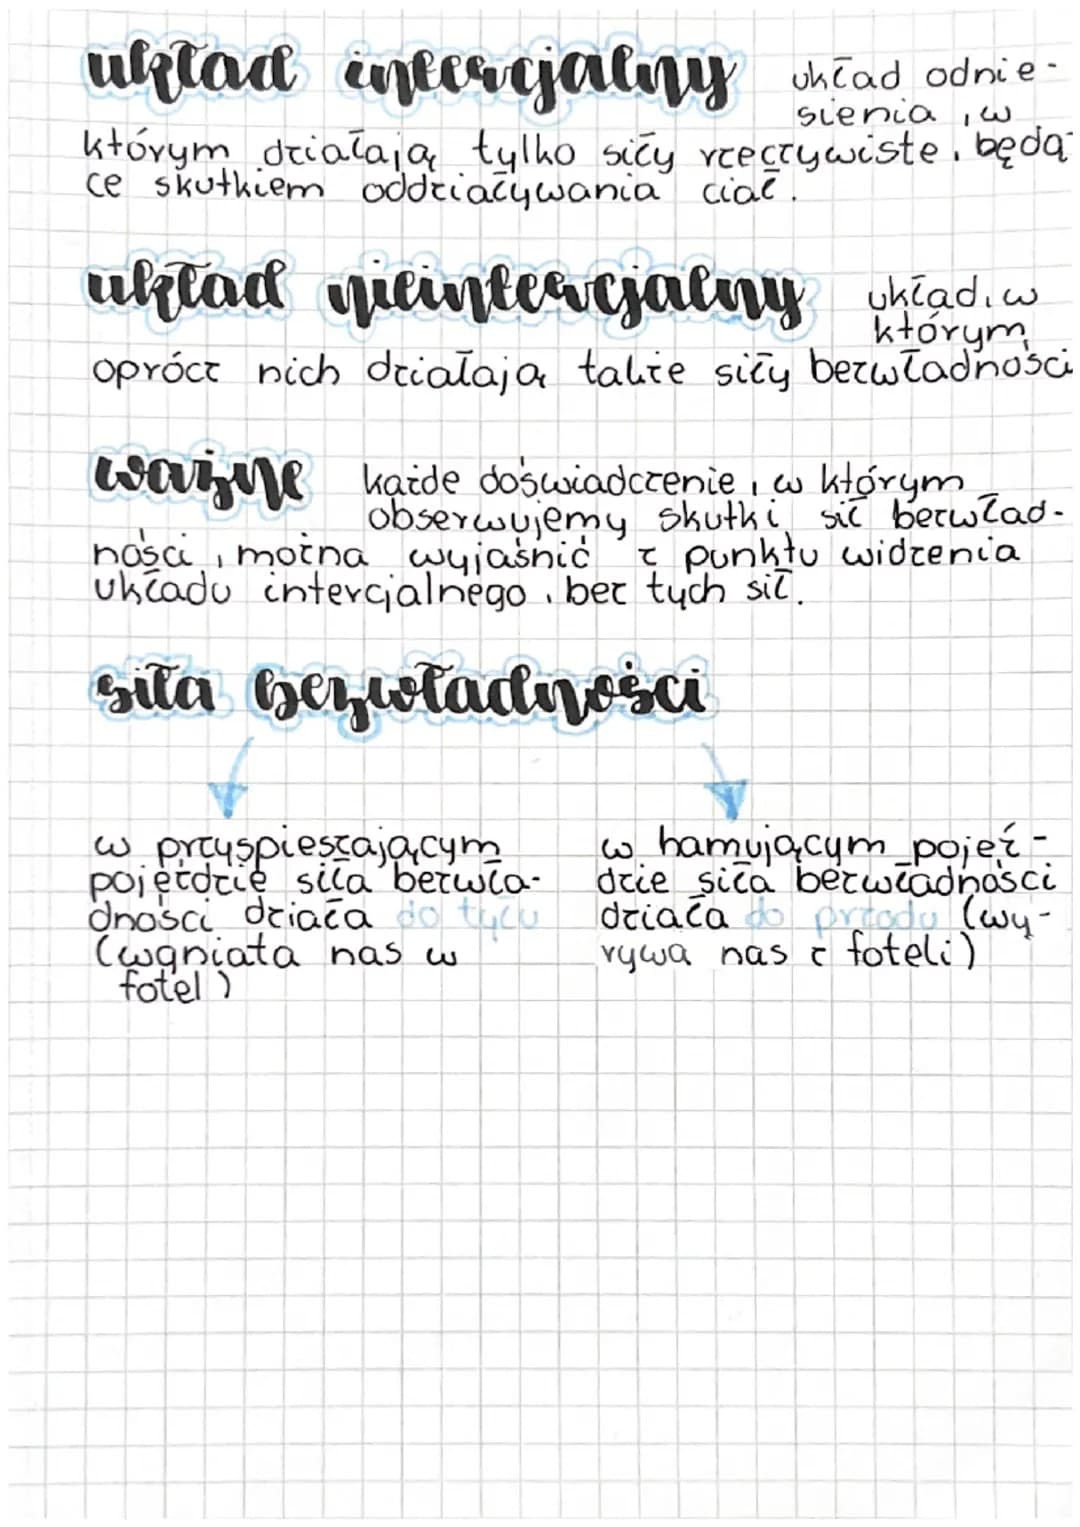 układ intercjalny układ odnie-
sienia, w
którym działają tylko siły rzeczywiste, będą-
ce skutkiem oddziaływania ciał.
układ nieintercjalny układ, w
którym
oprócz nich działają także siły bezwładności
ważne każde doświadczenie, w którym
obserwujemy skutki sił bezwład-
ności, można wyjaśnić z punktu widzenia
układu intercjalnego, bez tych sił.
siła bezwładności
w przyspieszającym
pojeździe siła bezwła-
dności działa do tyłu
(wgniata nas w
fotel)
w hamującym pojeź-
dzie siła bezwładności
działa do przodu (wy-
rywa nas z foteli)